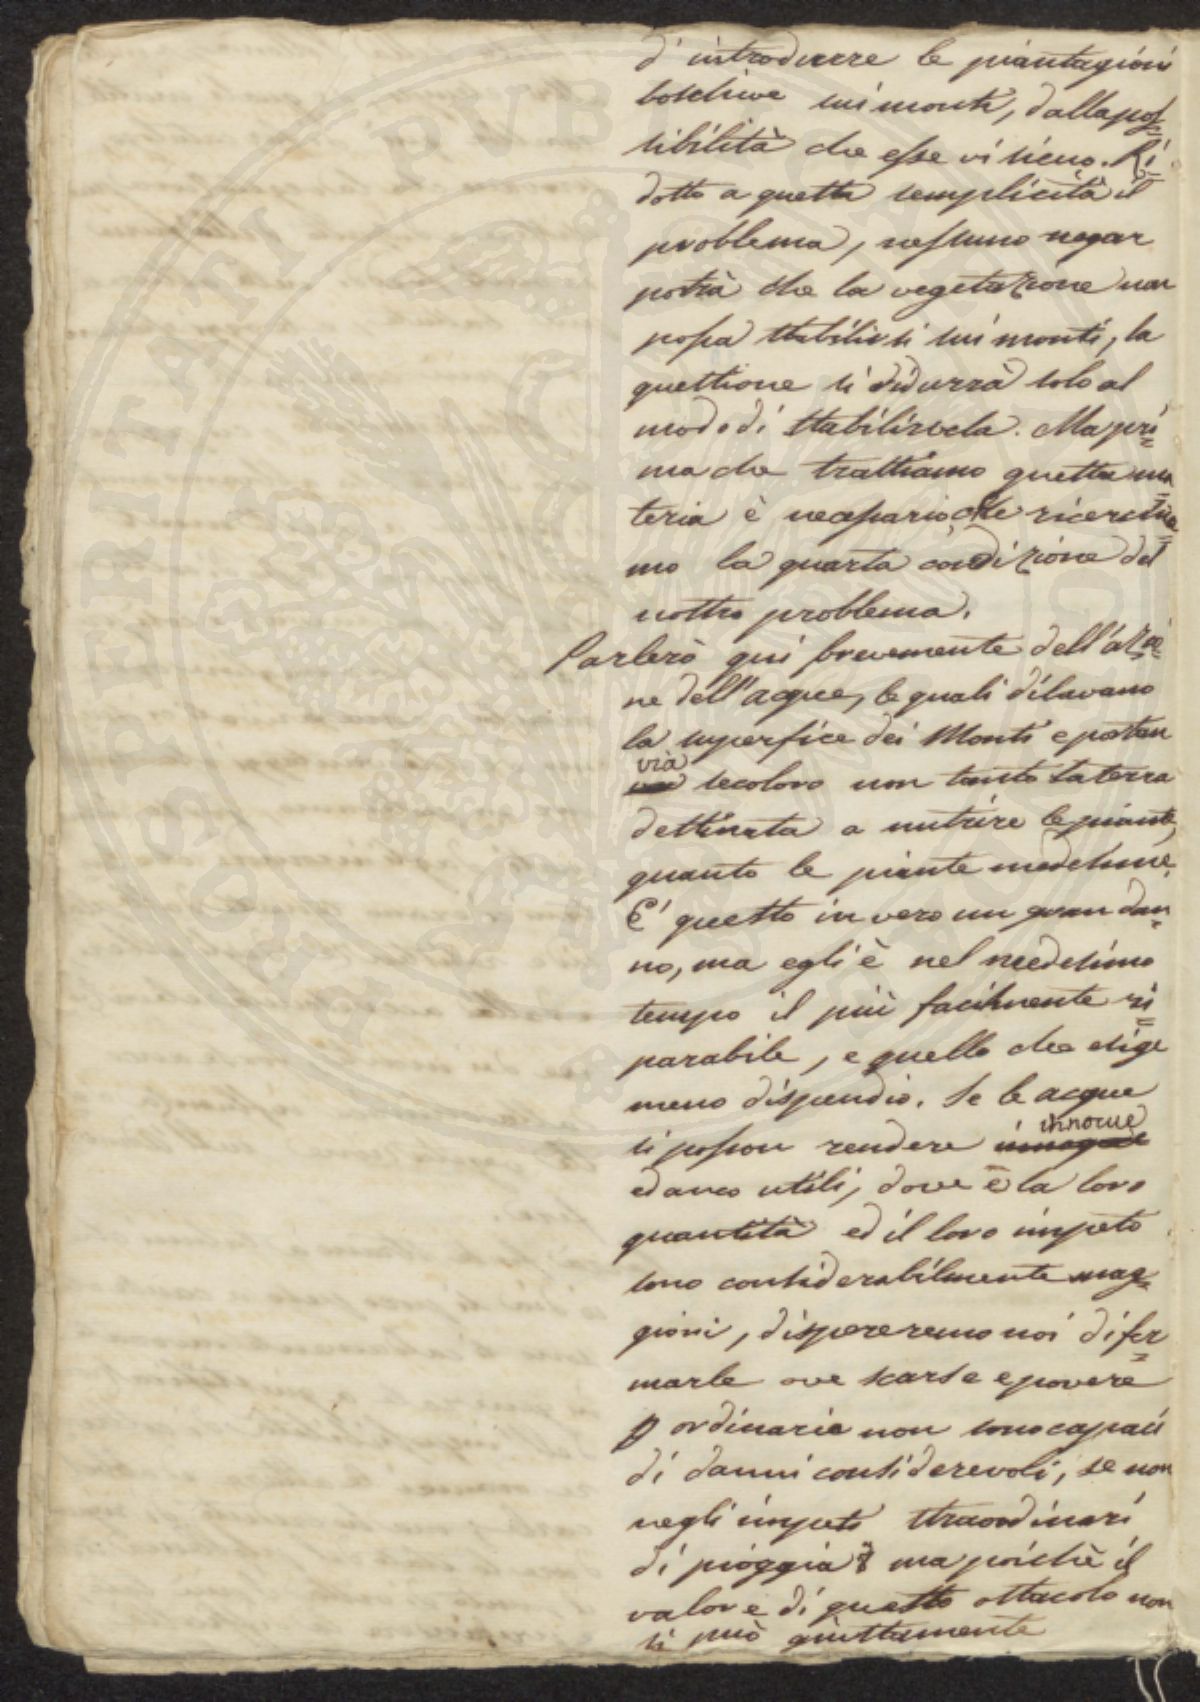 d'introdurre le piantagioni
boschive sui monti, dalla pos=
sibilità che esse vi sieno. Ri=
dotto a questa semplicità il
problema, nessuno negar
potrà che la vegetazione non
possa stabilirsi sui monti, la
questione si ridurrà solo al
modo di stabilirvela. Ma pri=
ma che trattiamo questa ma=
teria è necessario che ricerchia=
mo la quarta condizione del
nostro problema.
Parlerò qui brevemente dell'azio=
ne dell'acque, le quali dilavano
la superfice dei Monti e portan
via
secoloro non tanto la terra
destinata a nutrire le piante,
quanto le piante medesime.
E' questo in vero un gran dan=
no, ma egli è nel medesimo
tempo il più facilmente ri=
parabile, e quello che esige
meno dispendio. Se le acque
innocue
si posson rendere
ed anco utili, dove è la loro
quantità ed il loro impeto
sono considerabilmente mag=
giori, dispereremo noi di fer=
marle ove scarse e povere
p ordinario non sono capaci
di danni considerevoli, se non
negli impeti straordinari
di pioggia? ma poichè il
valore di questo ostacolo non
si può giustamente
PROSPERITATI PUBLICAE